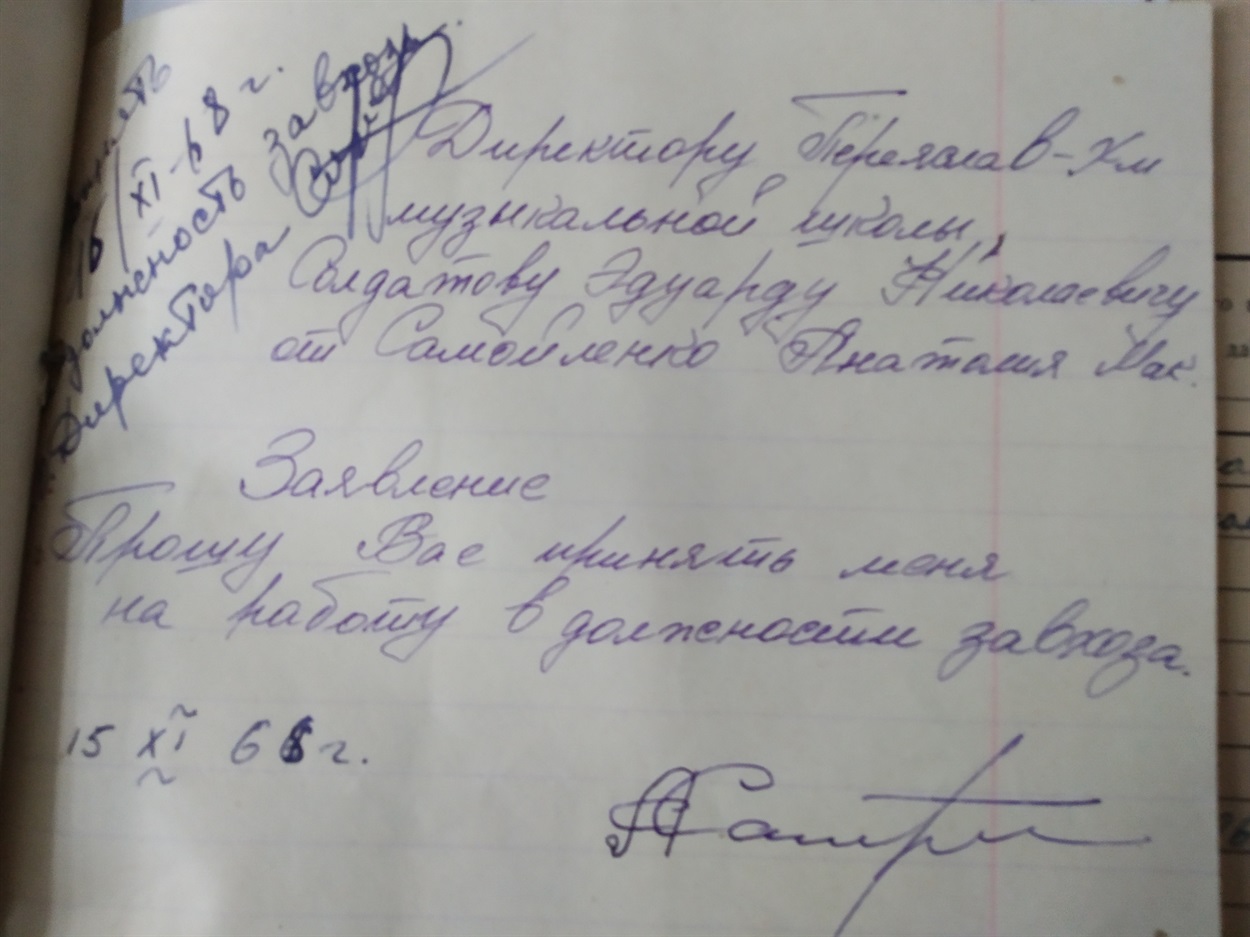 принять
16/XI-68 г.
должность завхоза.
Директора
Директору Переяслав-Хм
музыкальной школы,
Солдатову Эдуарду Николаевичу
от Самойленко Анатолия Мак.
Заявление
Прошу Вас принять меня
на работу в должности завхоза.
15 XI 68 г.